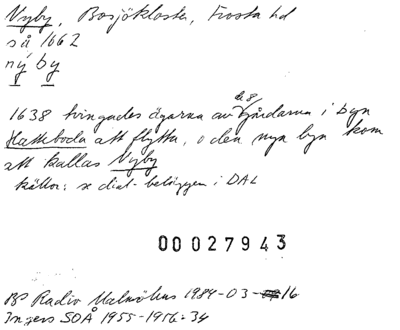 Nyby, Bosjökloster, Frosta hd
så 1662
ný by
1638 tvingades ägarna av de 8 gårdarna i byn
Hatteboda att flytta, o den nya byn kom
att kallas Nyby
källor: x dial-beläggen i DAL
00027943
BP Radio Malmöhus 1984-03-16
Ingers SOÅ 1955-1956:34